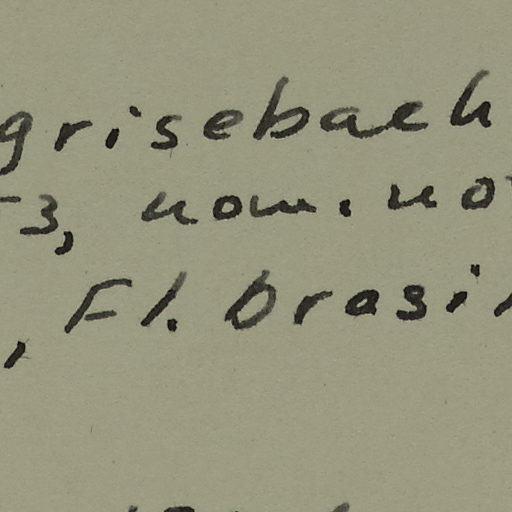 grisebach
53, nom. no
, Fl. brasi